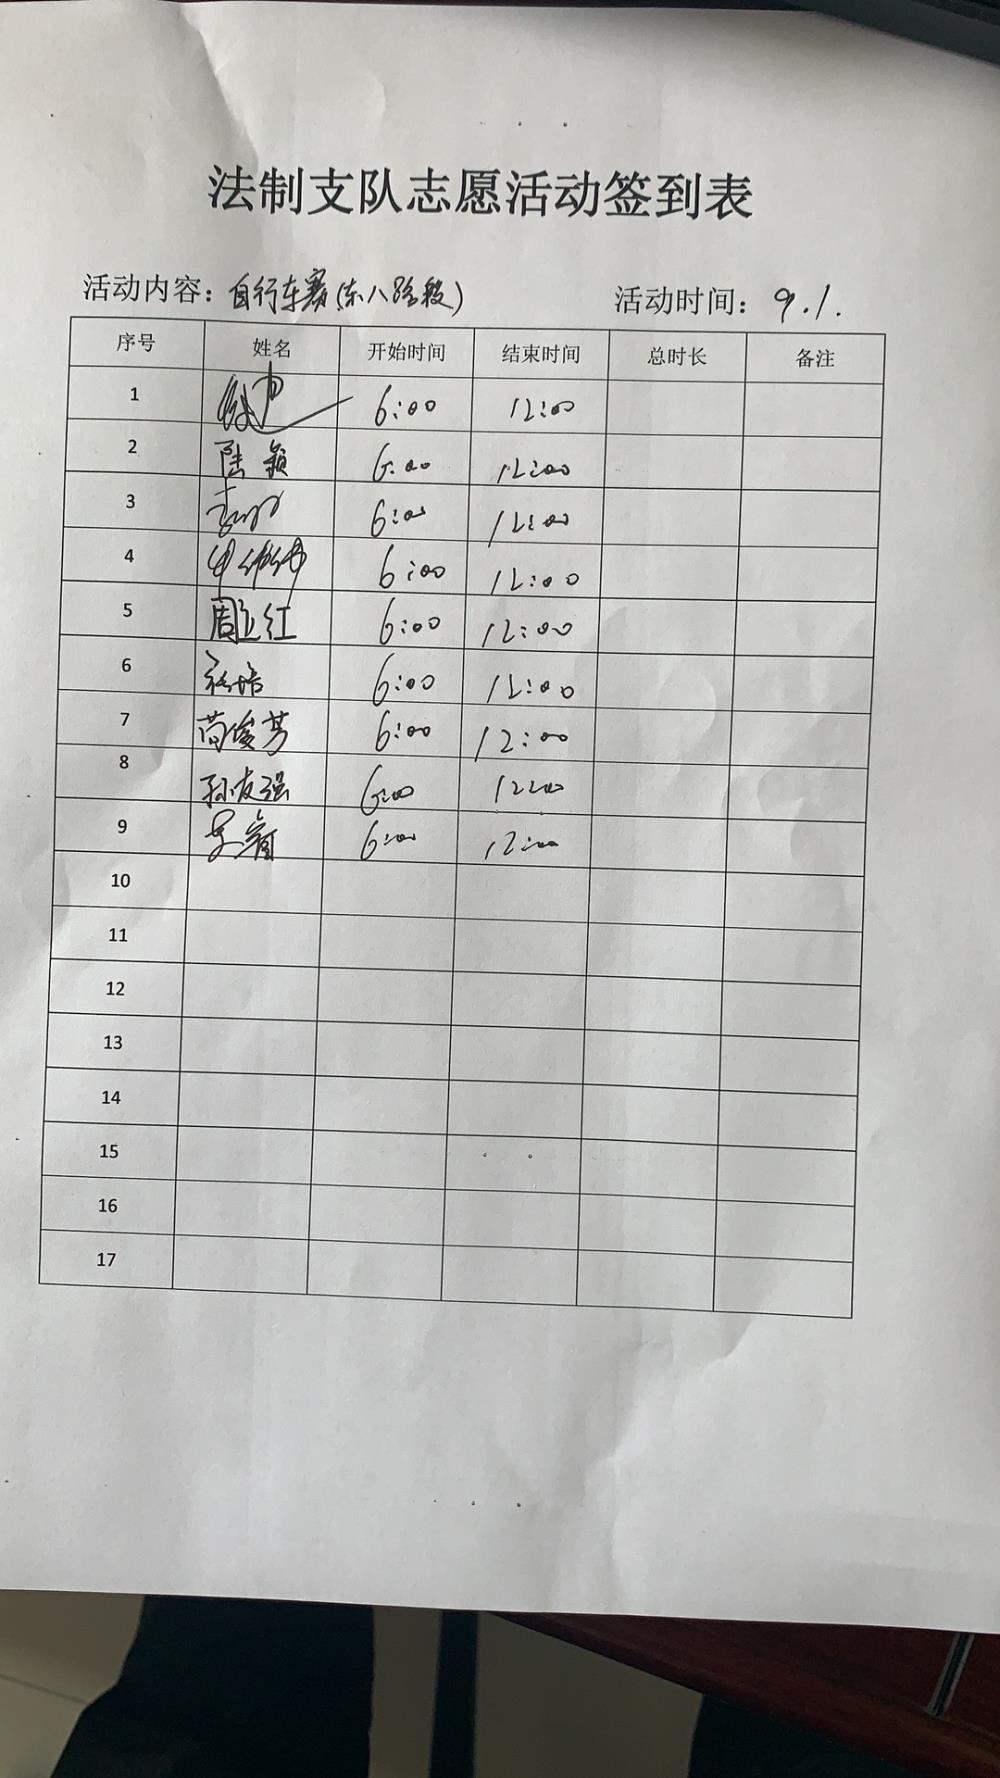 法制支队志愿活动签到表
活动内容：自行车赛(东八路段) 活动时间：9.1.
序号 姓名 开始时间 结束时间 总时长 备注
1 6:00 12:00
2 陆颖 6:00 12:00
3 6:00 12:00
4 6:00 12:00
5 周立红 6:00 12:00
6 6:00 12:00
7 苟俊芳 6:00 12:00
8 孙友强 6:00 12:00
9 6:00 12:00
10
11
12
13
14
15
16
17